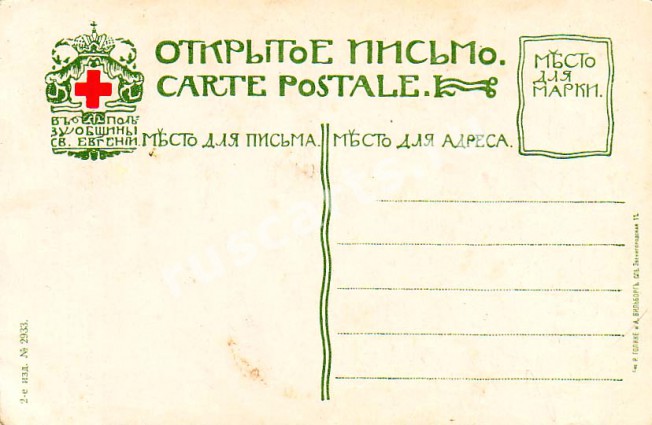 ОТКРЫТОЕ ПИСЬМО.
CARTE POSTALE.
МѢСТО
ДЛЯ
МАРКИ.
ВЪ ПОЛЬ
ЗУ ОБЩИНЫ
СВ. ЕВГЕНІИ.
МѢСТО ДЛЯ ПИСЬМА.
МѢСТО ДЛЯ АДРЕСА.
2-е изд. № 2933.
Р. ГОЛИКЕ и А. ВИЛЬБОРГЪ. СПБ. Звенигородская 11.